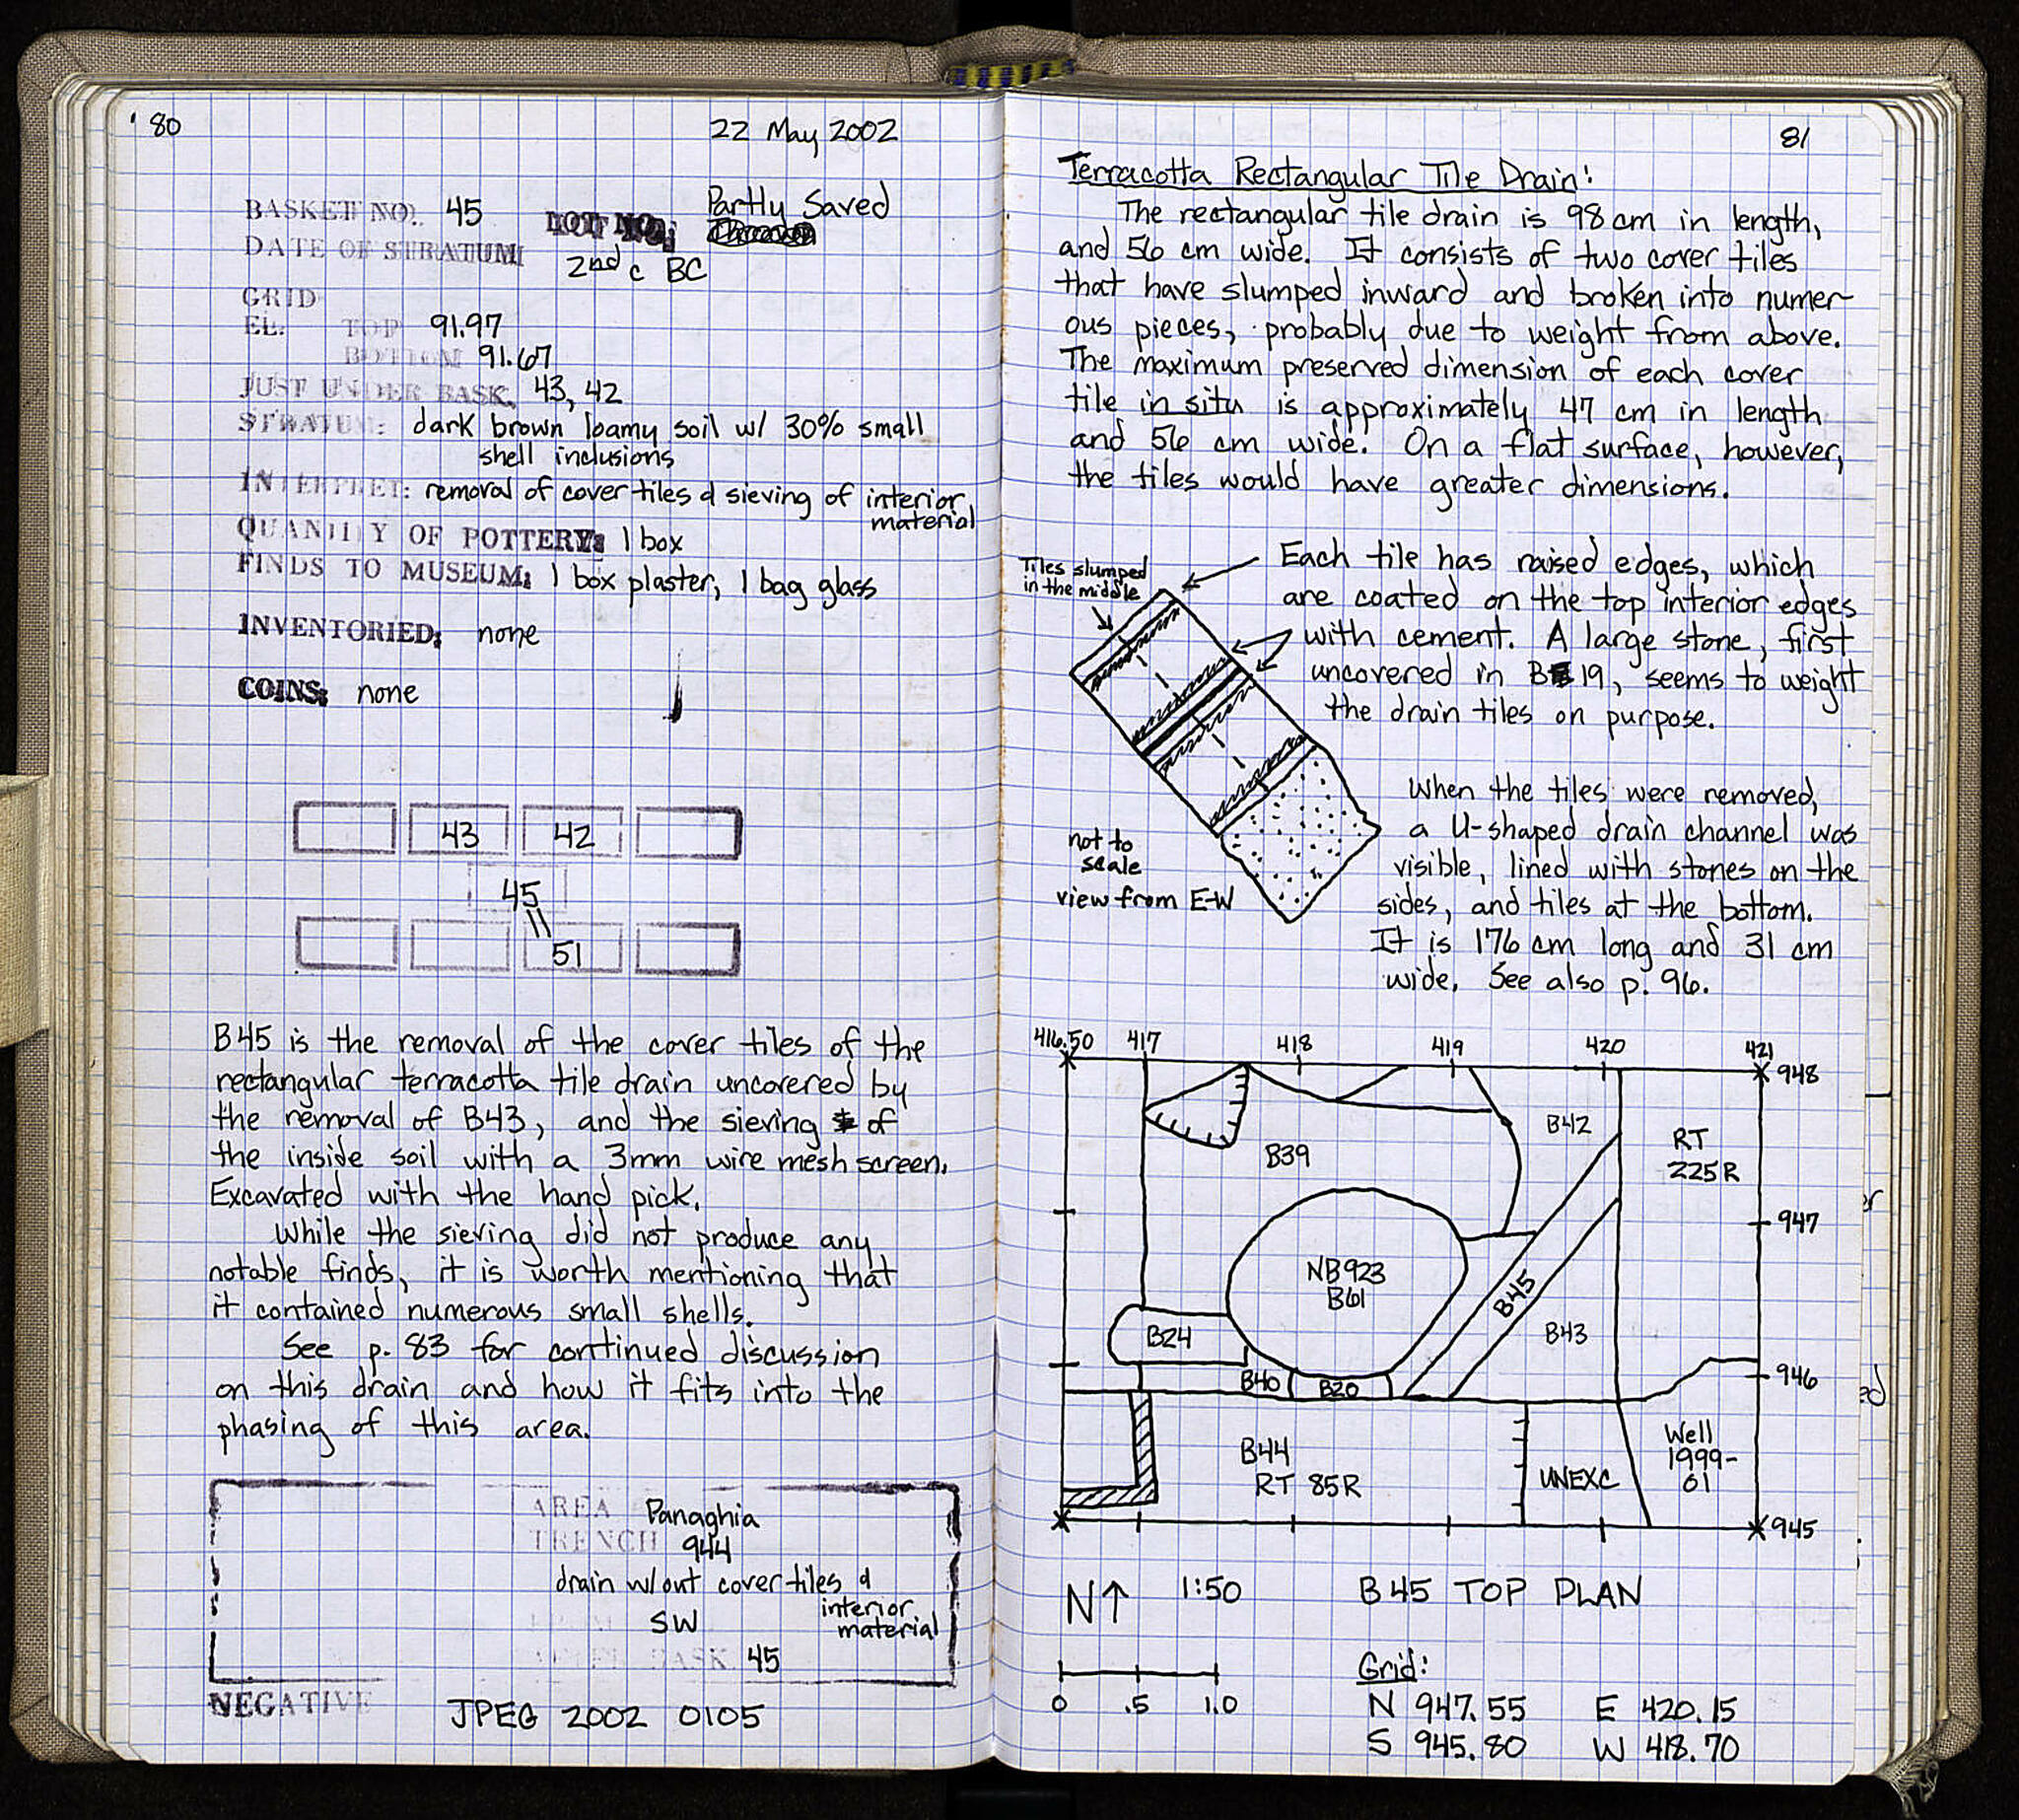 80
22 May 2002
BASKET NO. 45 LOT NO. Partly Saved
DATE OF STRATUM: 2nd c BC
GRID
EL. TOP 91.97
BOTTOM 91.67
JUST UNDER BASK. 43, 42
STRATUM: dark brown loamy soil w/ 30% small
shell inclusions
INTERPRET: removal of cover tiles & sieving of interior
material
QUANTITY OF POTTERY: 1 box
FINDS TO MUSEUM: 1 box plaster, 1 bag glass
INVENTORIED: none
COINS: none
43 42
45
51
B45 is the removal of the cover tiles of the
rectangular terracotta tile drain uncovered by
the removal of B43, and the sieving of
the inside soil with a 3mm wire mesh screen.
Excavated with the hand pick.
While the sieving did not produce any
notable finds, it is worth mentioning that
it contained numerous small shells.
See p. 83 for continued discussion
on this drain and how it fits into the
phasing of this area.
AREA Panaghia
TRENCH 944
drain w/out cover tiles &
interior
material
SW
BASK 45
NEGATIVE JPEG 2002 0105
81
Terracotta Rectangular Tile Drain:
The rectangular tile drain is 98 cm in length,
and 56 cm wide. It consists of two cover tiles
that have slumped inward and broken into numer-
ous pieces, probably due to weight from above.
The maximum preserved dimension of each cover
tile in situ is approximately 47 cm in length
and 56 cm wide. On a flat surface, however,
the tiles would have greater dimensions.
Tiles slumped
in the middle
Each tile has raised edges, which
are coated on the top interior edges
with cement. A large stone, first
uncovered in B 19, seems to weight
the drain tiles on purpose.
not to
scale
view from E-W
When the tiles were removed,
a U-shaped drain channel was
visible, lined with stones on the
sides, and tiles at the bottom.
It is 176 cm long and 31 cm
wide. See also p. 96.
416.50 417 418 419 420 421
948
B42
RT
225R
B39
947
NB923
B61
B45
B24
B43
B40 B20
946
B44
RT 85R
UNEXC
Well
1999-
01
945
N↑ 1:50 B45 TOP PLAN
0 .5 1.0
Grid:
N 947.55 E 420.15
S 945.80 W 418.70